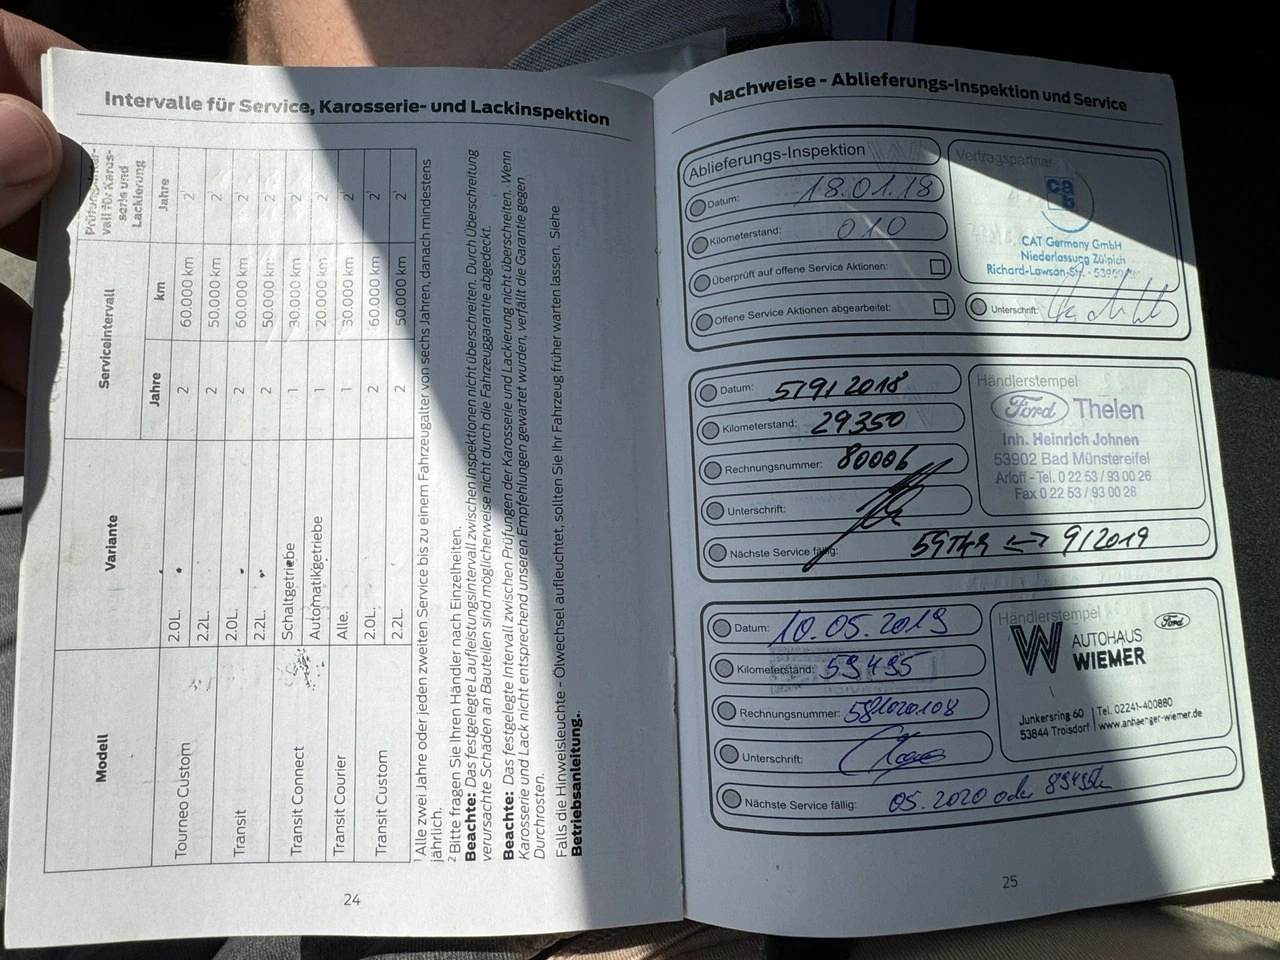 Intervalle für Service, Karosserie- und Lackinspektion
Modell
Variante
Serviceintervall
Jahre
km
Prüfungsinter-
vall für Karos-
serie und
Lackierung
Jahre
Tourneo Custom
2.0L. 2 60.000 km 2
2.2L. 2 50.000 km 2
Transit
2.0L. 2 60.000 km 2
2.2L. 2 50.000 km 2
Transit Connect
Schaltgetriebe 1 30.000 km 2
Automatikgetriebe 1 20.000 km 2
Transit Courier
Alle. 1 30.000 km 2
Transit Custom
2.0L. 2 60.000 km 2
2.2L. 2 50.000 km 2
¹ Alle zwei Jahre oder jeden zweiten Service bis zu einem Fahrzeugalter von sechs Jahren, danach mindestens
jährlich.
² Bitte fragen Sie Ihren Händler nach Einzelheiten.
Beachte: Das festgelegte Laufleistungsintervall zwischen Inspektionen nicht überschreiten. Durch Überschreitung
verursachte Schäden an Bauteilen sind möglicherweise nicht durch die Fahrzeuggarantie abgedeckt.
Beachte: Das festgelegte Intervall zwischen Prüfungen der Karosserie und Lackierung nicht überschreiten. Wenn
Karosserie und Lack nicht entsprechend unseren Empfehlungen gewartet wurden, verfällt die Garantie gegen
Durchrosten.
Falls die Hinweisleuchte - Ölwechsel aufleuchtet, sollten Sie Ihr Fahrzeug früher warten lassen. Siehe
Betriebsanleitung.
24
Nachweise - Ablieferungs-Inspektion und Service
Ablieferungs-Inspektion
Datum: 18.01.18
Kilometerstand: 010
Überprüft auf offene Service Aktionen:
Offene Service Aktionen abgearbeitet:
Vertragspartner
CAT Germany GmbH
Niederlassung Zülpich
Richard-Lawson-Str. - 53909
Unterschrift:
Datum: 5/9/2018
Kilometerstand: 29350
Rechnungsnummer: 80006
Unterschrift:
Nächste Service fällig: 9/2019
Händlerstempel
Ford Thelen
Inh. Heinrich Johnen
53902 Bad Münstereifel
Arloff - Tel. 0 22 53 / 93 00 26
Fax 0 22 53 / 93 00 28
Datum: 10.05.2019
Kilometerstand: 59495
Rechnungsnummer: 581020108
Unterschrift:
Nächste Service fällig: 05.2020 oder
Händlerstempel
Ford
W AUTOHAUS
WIEMER
Junkersring 60 | Tel. 02241-400880
53844 Troisdorf | www.anhaenger-wiemer.de
25